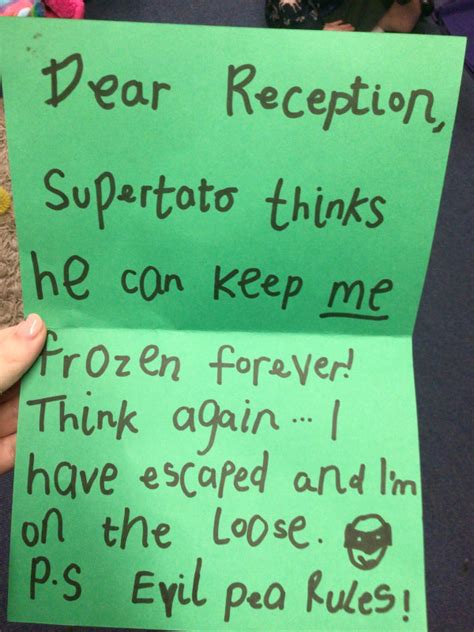 Dear Reception,
Supertato thinks
he can keep me
frozen forever!
Think again... I
have escaped and I'm
on the loose.
P.S Evil pea Rules!